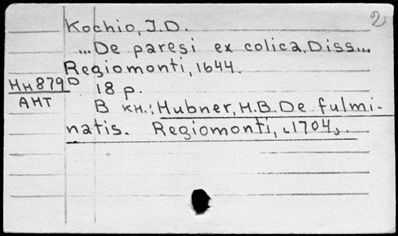 2
Kochio, J.D.
...De paresi ex colica. Diss...
Regiomonti, 1644.
Нн879D 18 p.
АНТ В кн.: Hubner, H.B. De fulmi-
natis. Regiomonti, ⌞1704⌟.